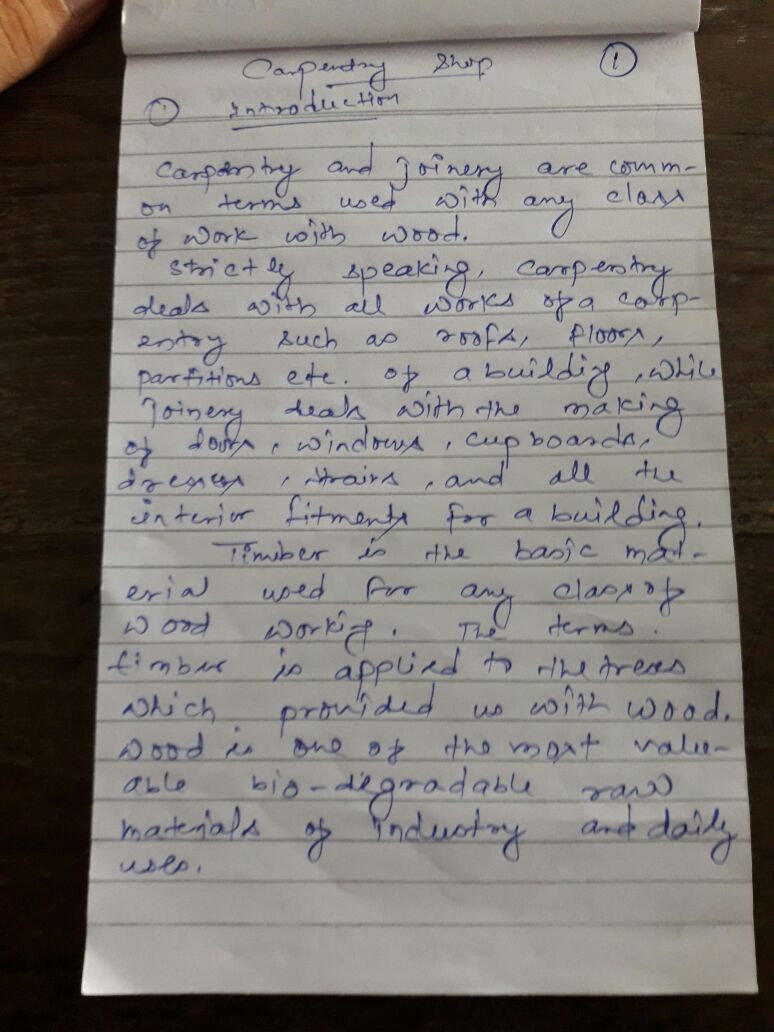 Carpentry Shop ①
① Introduction
Carpentry and Joinery are comm-
on terms used with any class
of work with wood.
Strictly speaking, carpentry
deals with all works of a carp-
entry such as roofs, floors,
partitions etc. of a building, while
Joinery deals with the making
of doors, windows, cupboards,
dresses, stairs, and all the
interior fitments for a building.
Timber is the basic mat-
erial used for any class of
wood working. The terms.
timber is applied to the trees
which provided us with wood.
Wood is one of the most value-
able bio-degradable raw
materials of industry and daily
uses.